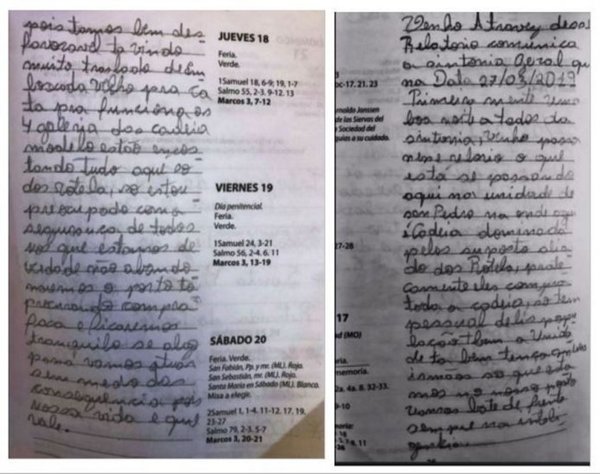 pois tamos bem des
favoravel ta vindo
muito traslado de Em
boscada velho para ca
ta pra funciona os
4 galeria das cadeia
modelo estão encos
tando tudo aqui so
dos Rotela, so estou
preocupado com a
segurança de todos
nos que estamos de
verdade não abando
naremos o posto to
procurando compra
faca e ficaremos
tranquilo se algo
passa vamos atua
sem medo das
consequencia pois
nossa vida e que
vale.
JUEVES 18
Feria.
Verde.
1Samuel 18, 6-9; 19, 1-7
Salmo 55, 2-3. 9-12. 13
Marcos 3, 7-12
VIERNES 19
Día penitencial.
Feria.
Verde.
1Samuel 24, 3-21
Salmo 56, 2-4. 6. 11
Marcos 3, 13-19
SÁBADO 20
Feria. Verde.
San Fabián, Pp. y mr. (ML). Rojo.
San Sebastián, mr. (ML). Rojo.
Santa María en Sábado (ML). Blanco.
Misa a elegir.
2Samuel 1, 1-4. 11-12. 17. 19.
23-27
Salmo 79, 2-3. 5-7
Marcos 3, 20-21
Venho Atravez desse
Relatorio comunica
a sintonia Geral qu
na Data 27/03/2019
Primeira mente uma
boa noite a todos da
sintonia, Venho passa
nesse relatorio o que
esta se passando
aqui na unidade de
san Pedro na onde aqui
i Cadeia dominada
pelos suposto alia
do dos Rotela, prate
camente eles compro
todo a cadeia, so tem
pessoal deles popu
lação tbem a Unida
de ta bem tenço
irmãos so que esta
mos no nosso posto
vamos bate de frente
sempre na inteli
gencia.
oc-17. 21. 23
Arnoldo Janssen
de las Siervas del
Sociedad del
quias a su cuidado.
27-28
17
ad (MO)
memoria.
2a. 4a. 8. 32-33.
9-10